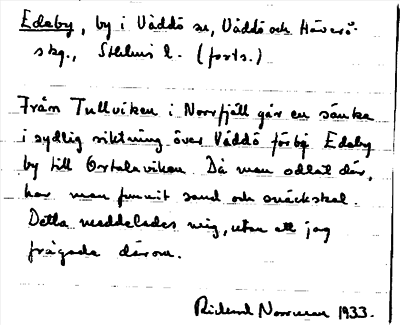 Edeby, by i Väddö sn, Väddö och Häverö
skg., Sthlms l. (forts.)
Från Tullviken i Norrfjäll går en sänka
i sydlig riktning över Väddö förbj Edeby
by till Ortalaviken. Då man odlat där,
har man funnit sand och snäckskal.
Detta meddelades mig, utan att jag
frågade därom.
Rickard Norrman 1933.